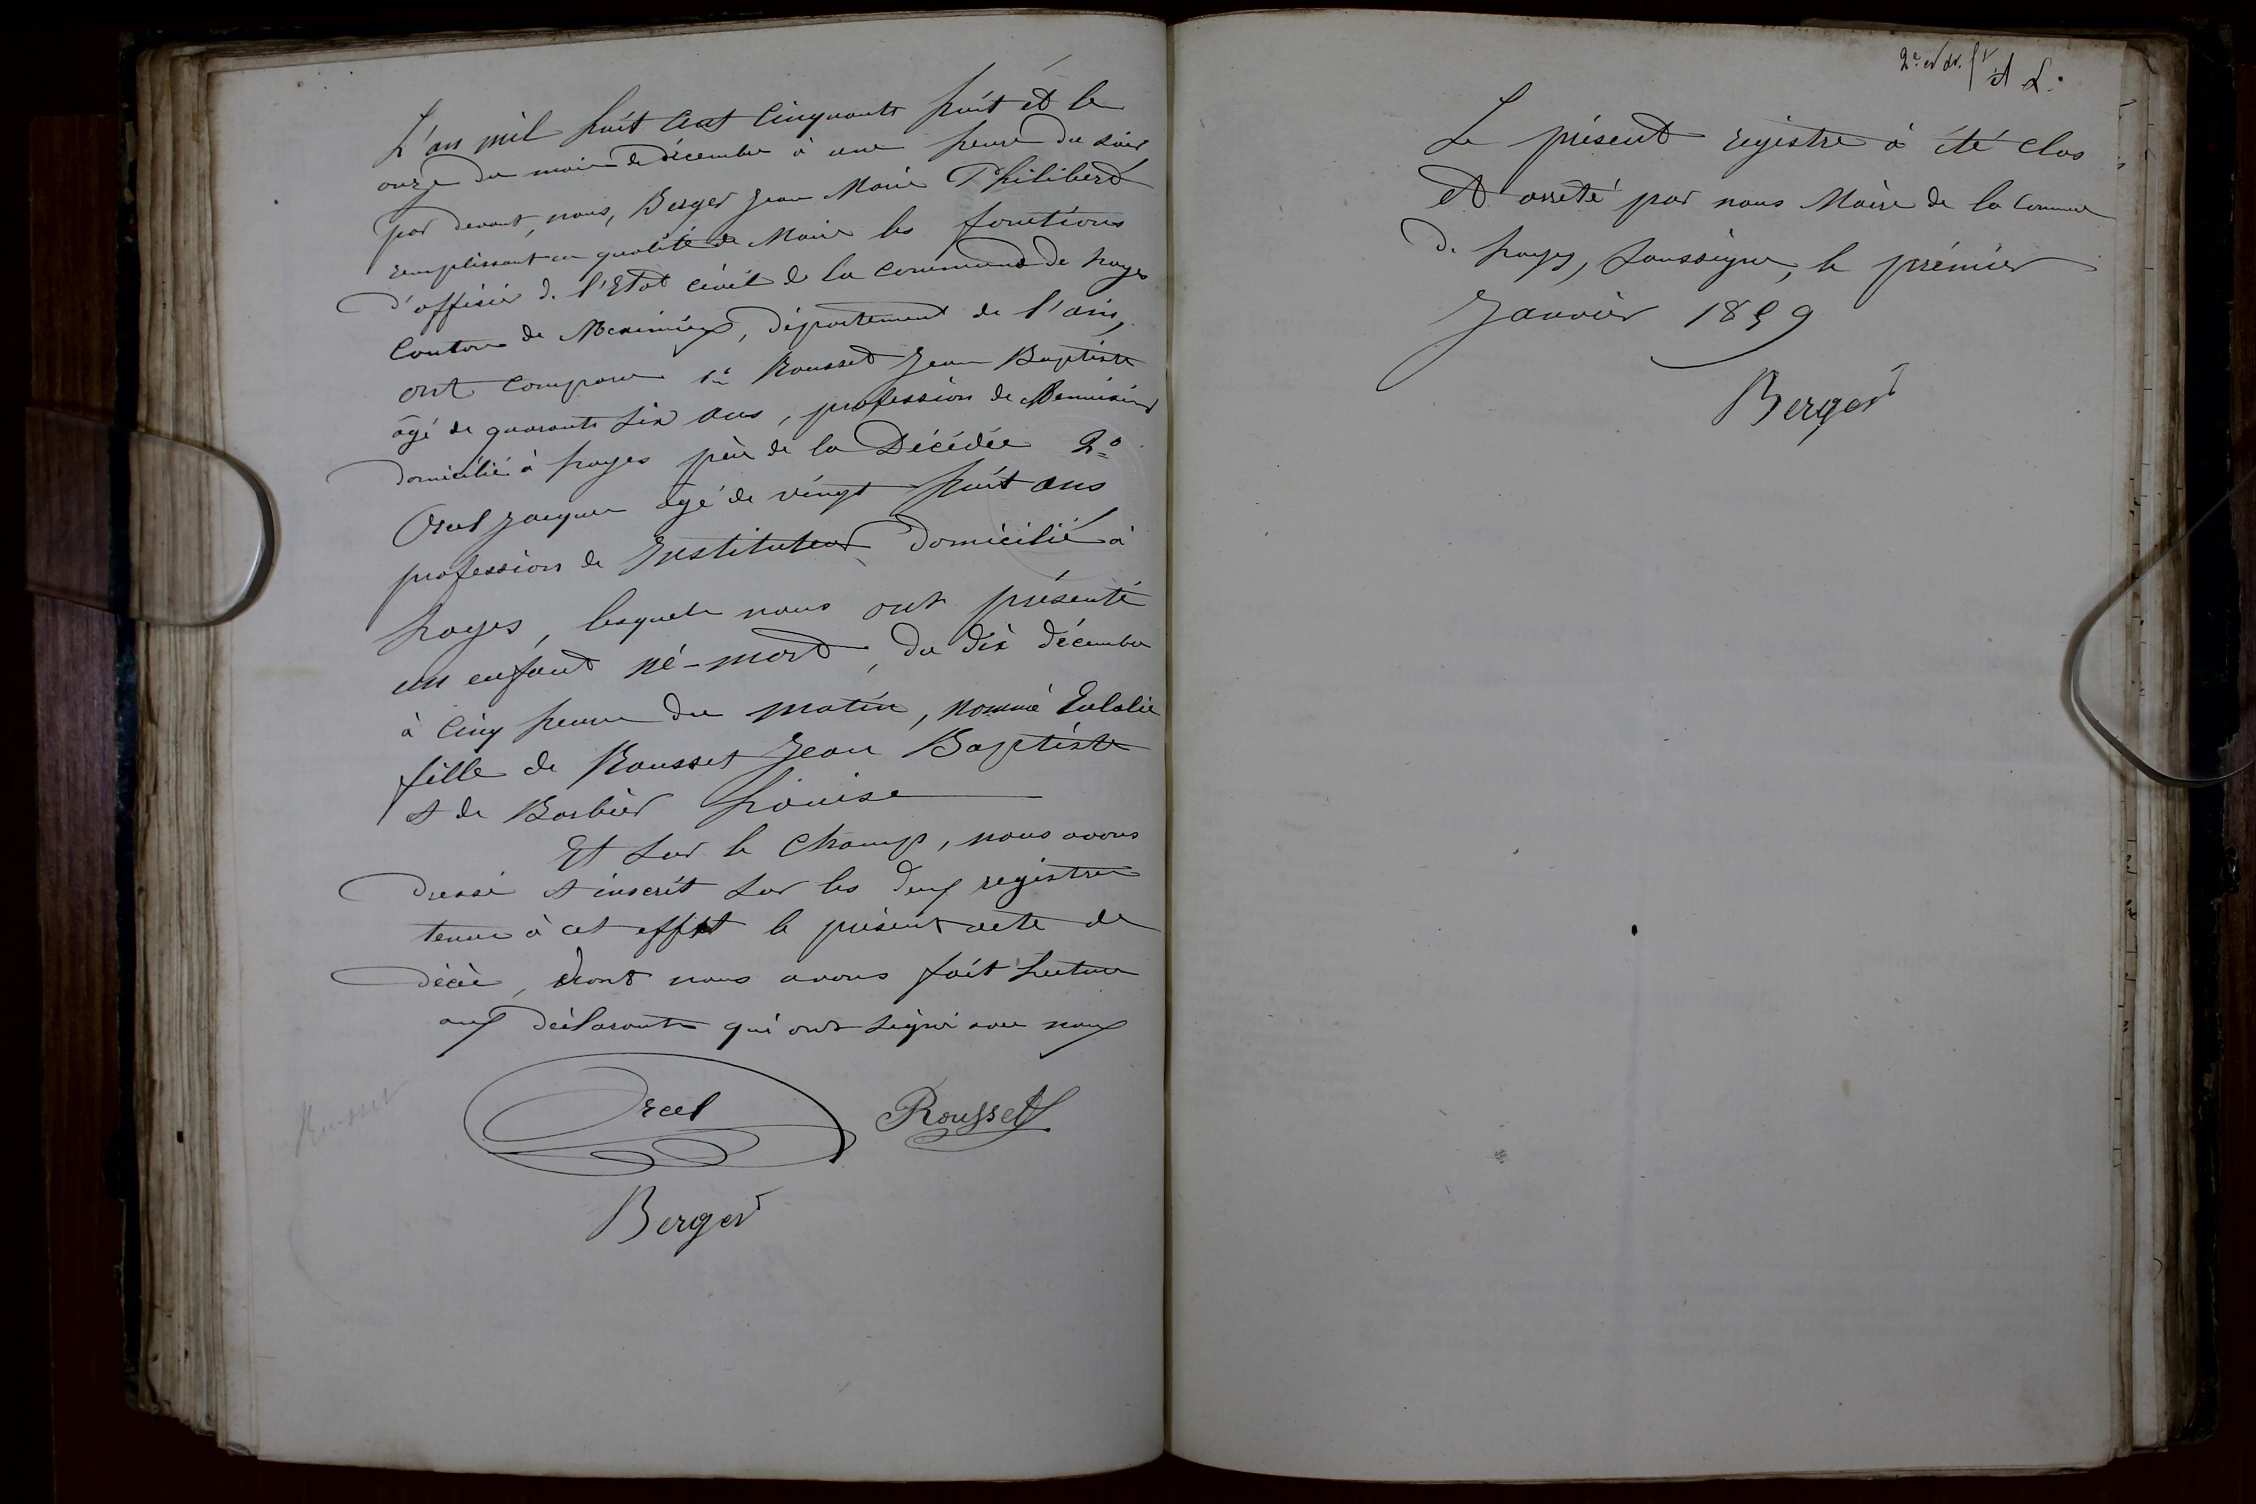 L'an mil huit cent cinquante huit et le
onze du mois de décembre à une heure du soir
par devant, nous, Berger Jean Marie Philibert
remplissant en qualité de Maire les fonctions
d'officier de l'Etat civil de la commune de Loyes
Canton de Meximieux, département de l'ain,
ont comparu 1º Rousset Jean Baptiste
âgé de quarante six ans, profession de Menuisier
domicilié à Loyes père de la Décédée 2º
Orcel Jacques âgé de vingt huit ans
profession de Instituteur domicilié à
Loyes, lesquels nous ont présenté
un enfant né-mort, du dix décembre
à cinq heures du matin, nommé Eulalie
fille de Rousset Jean Baptiste
et de Barbier Louise
Et sur le champ, nous avons
dressé et inscrit sur les deux registres
tenus à cet effet le présent acte de
décès, dont nous avons fait lecture
aux déclarants qui ont signé avec nous
Orcel Rousset
Berger
Rousset
Le présent registre à été clos
et arrêté par nous Maire de la commune
de Loyes, soussigné, le prémier
Janvier 1859
Berger